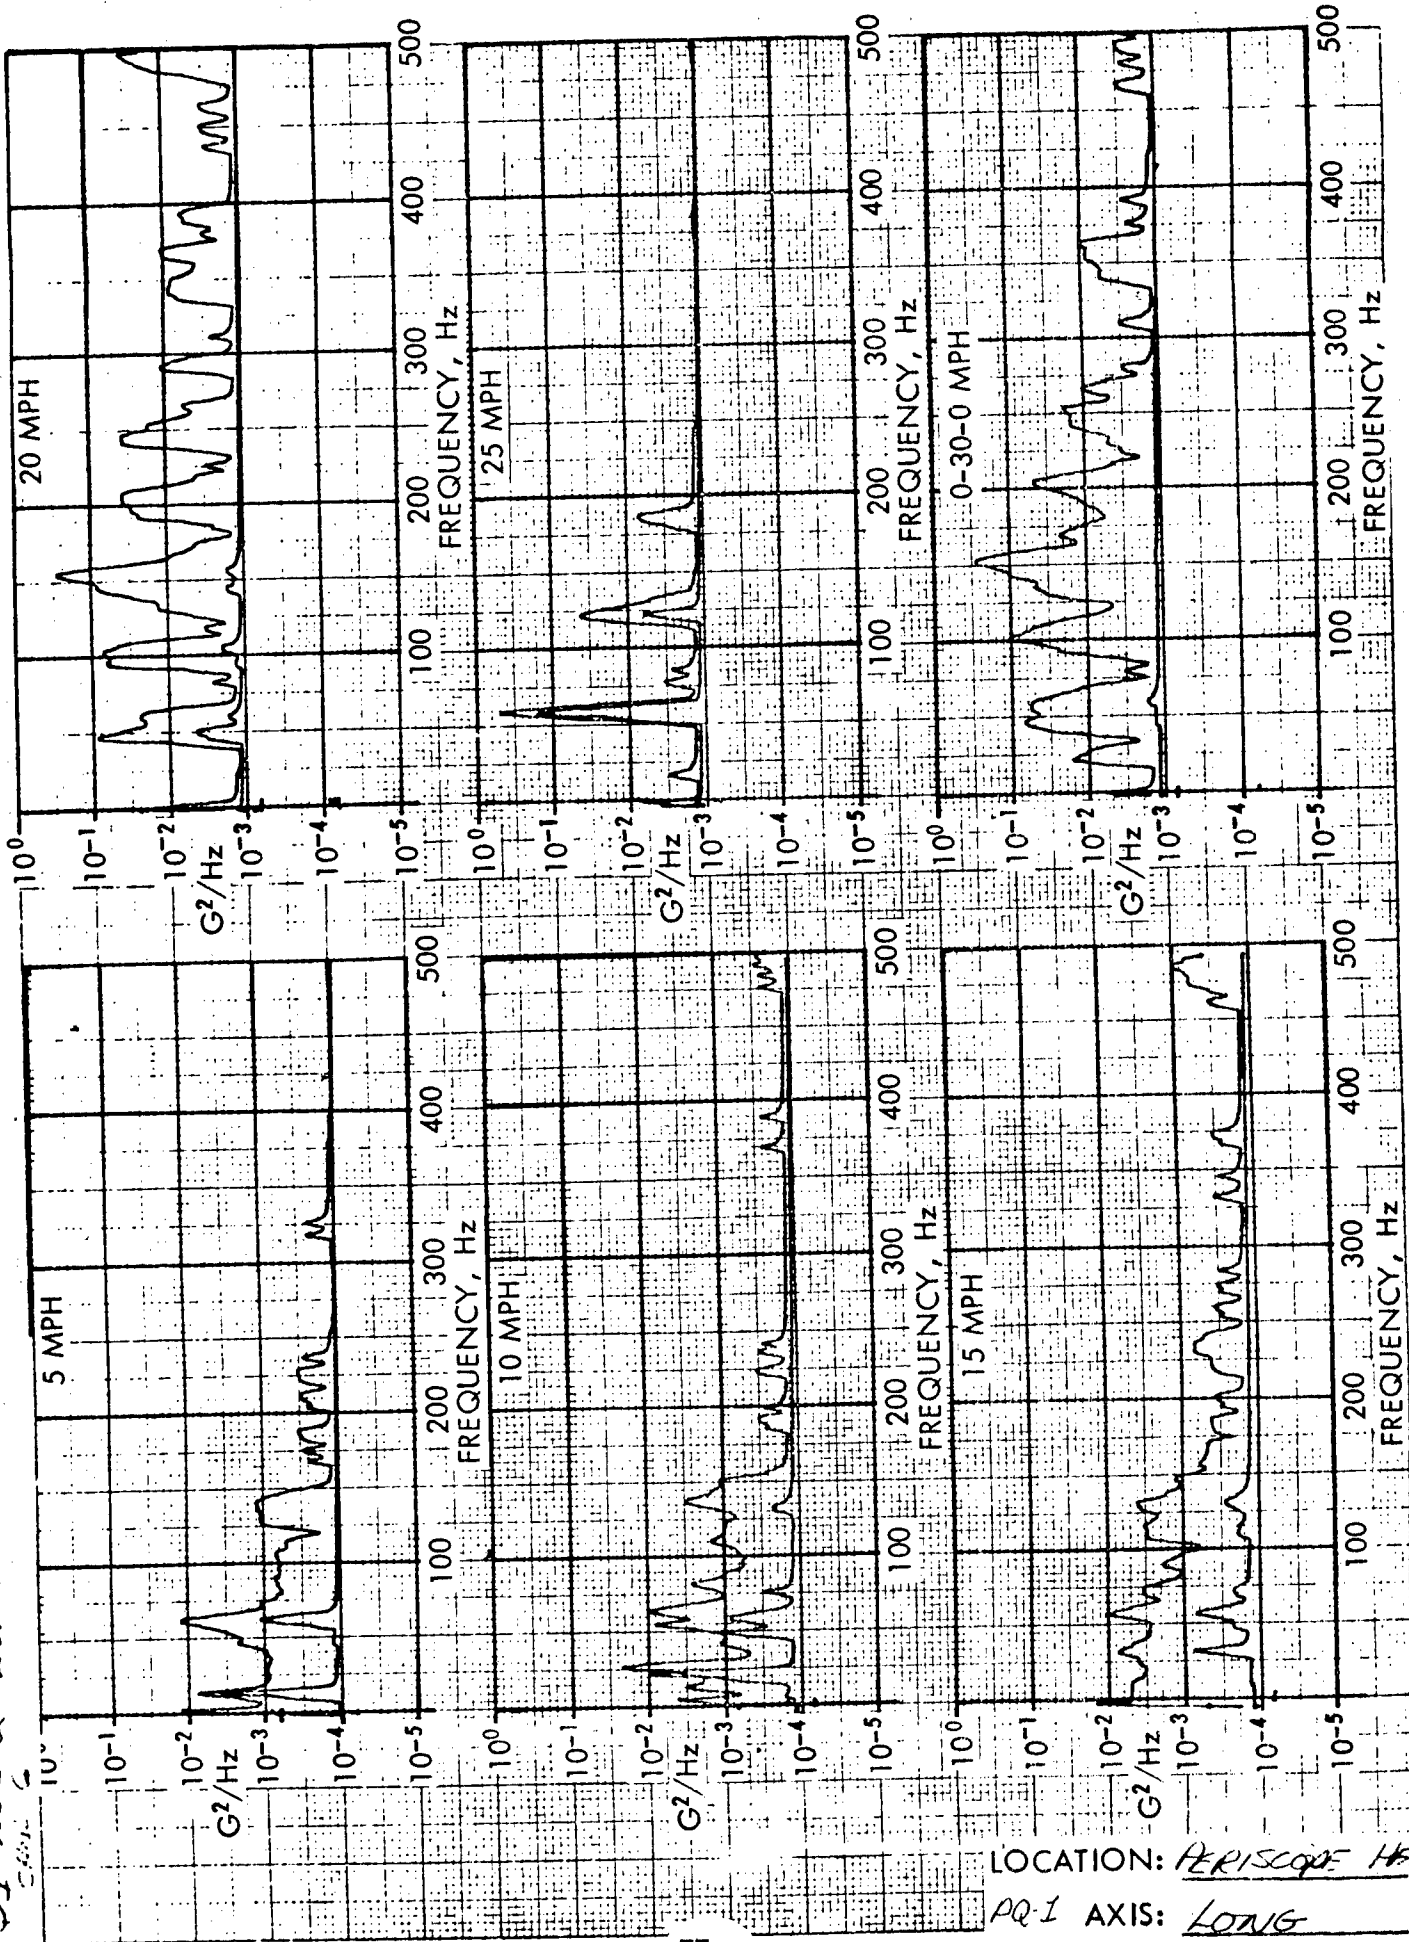 5 MPH
10⁻¹
10⁻²
G²/Hz
10⁻³
10⁻⁴
10⁻⁵
100 200 300 400 500
FREQUENCY, Hz
10 MPH
10⁰
10⁻¹
10⁻²
G²/Hz
10⁻³
10⁻⁴
10⁻⁵
100 200 300 400 500
FREQUENCY, Hz
15 MPH
10⁰
10⁻¹
10⁻²
G²/Hz
10⁻³
10⁻⁴
10⁻⁵
100 200 300 400 500
FREQUENCY, Hz
20 MPH
10⁰
10⁻¹
10⁻²
G²/Hz
10⁻³
10⁻⁴
10⁻⁵
100 200 300 400 500
FREQUENCY, Hz
25 MPH
10⁰
10⁻¹
10⁻²
G²/Hz
10⁻³
10⁻⁴
10⁻⁵
100 200 300 400 500
FREQUENCY, Hz
0-30-0 MPH
10⁰
10⁻¹
10⁻²
G²/Hz
10⁻³
10⁻⁴
10⁻⁵
100 200 300 400 500
FREQUENCY, Hz
LOCATION: PERISCOPE
PQ-1 AXIS: LONG